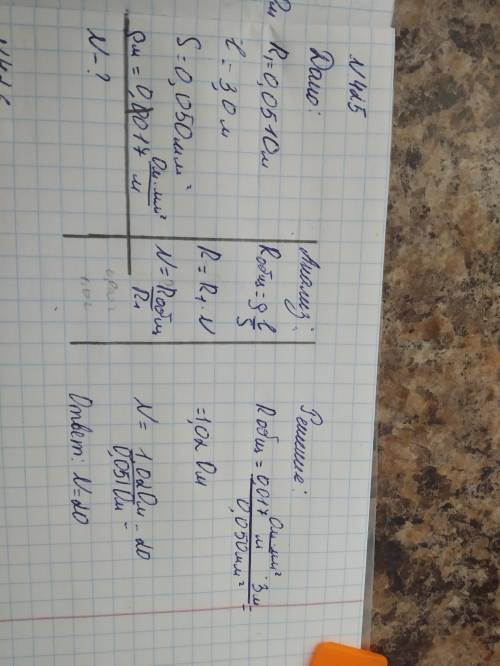 N 425
Дано:
R₁ = 0,051 Ом
ℓ = 3,0 м
S = 0,050 мм²
ρм = 0,0017 Ом·мм²/м
N - ?
Анализ:
Rобщ = ρ ℓ/S
R = R₁ · N
N = Rобщ/R₁
Решение:
Rобщ = 0,017 Ом·мм²/м · 3 м / 0,050 мм² =
= 1,02 Ом
N = 1,02 Ом / 0,051 Ом = 20
Ответ: N = 20